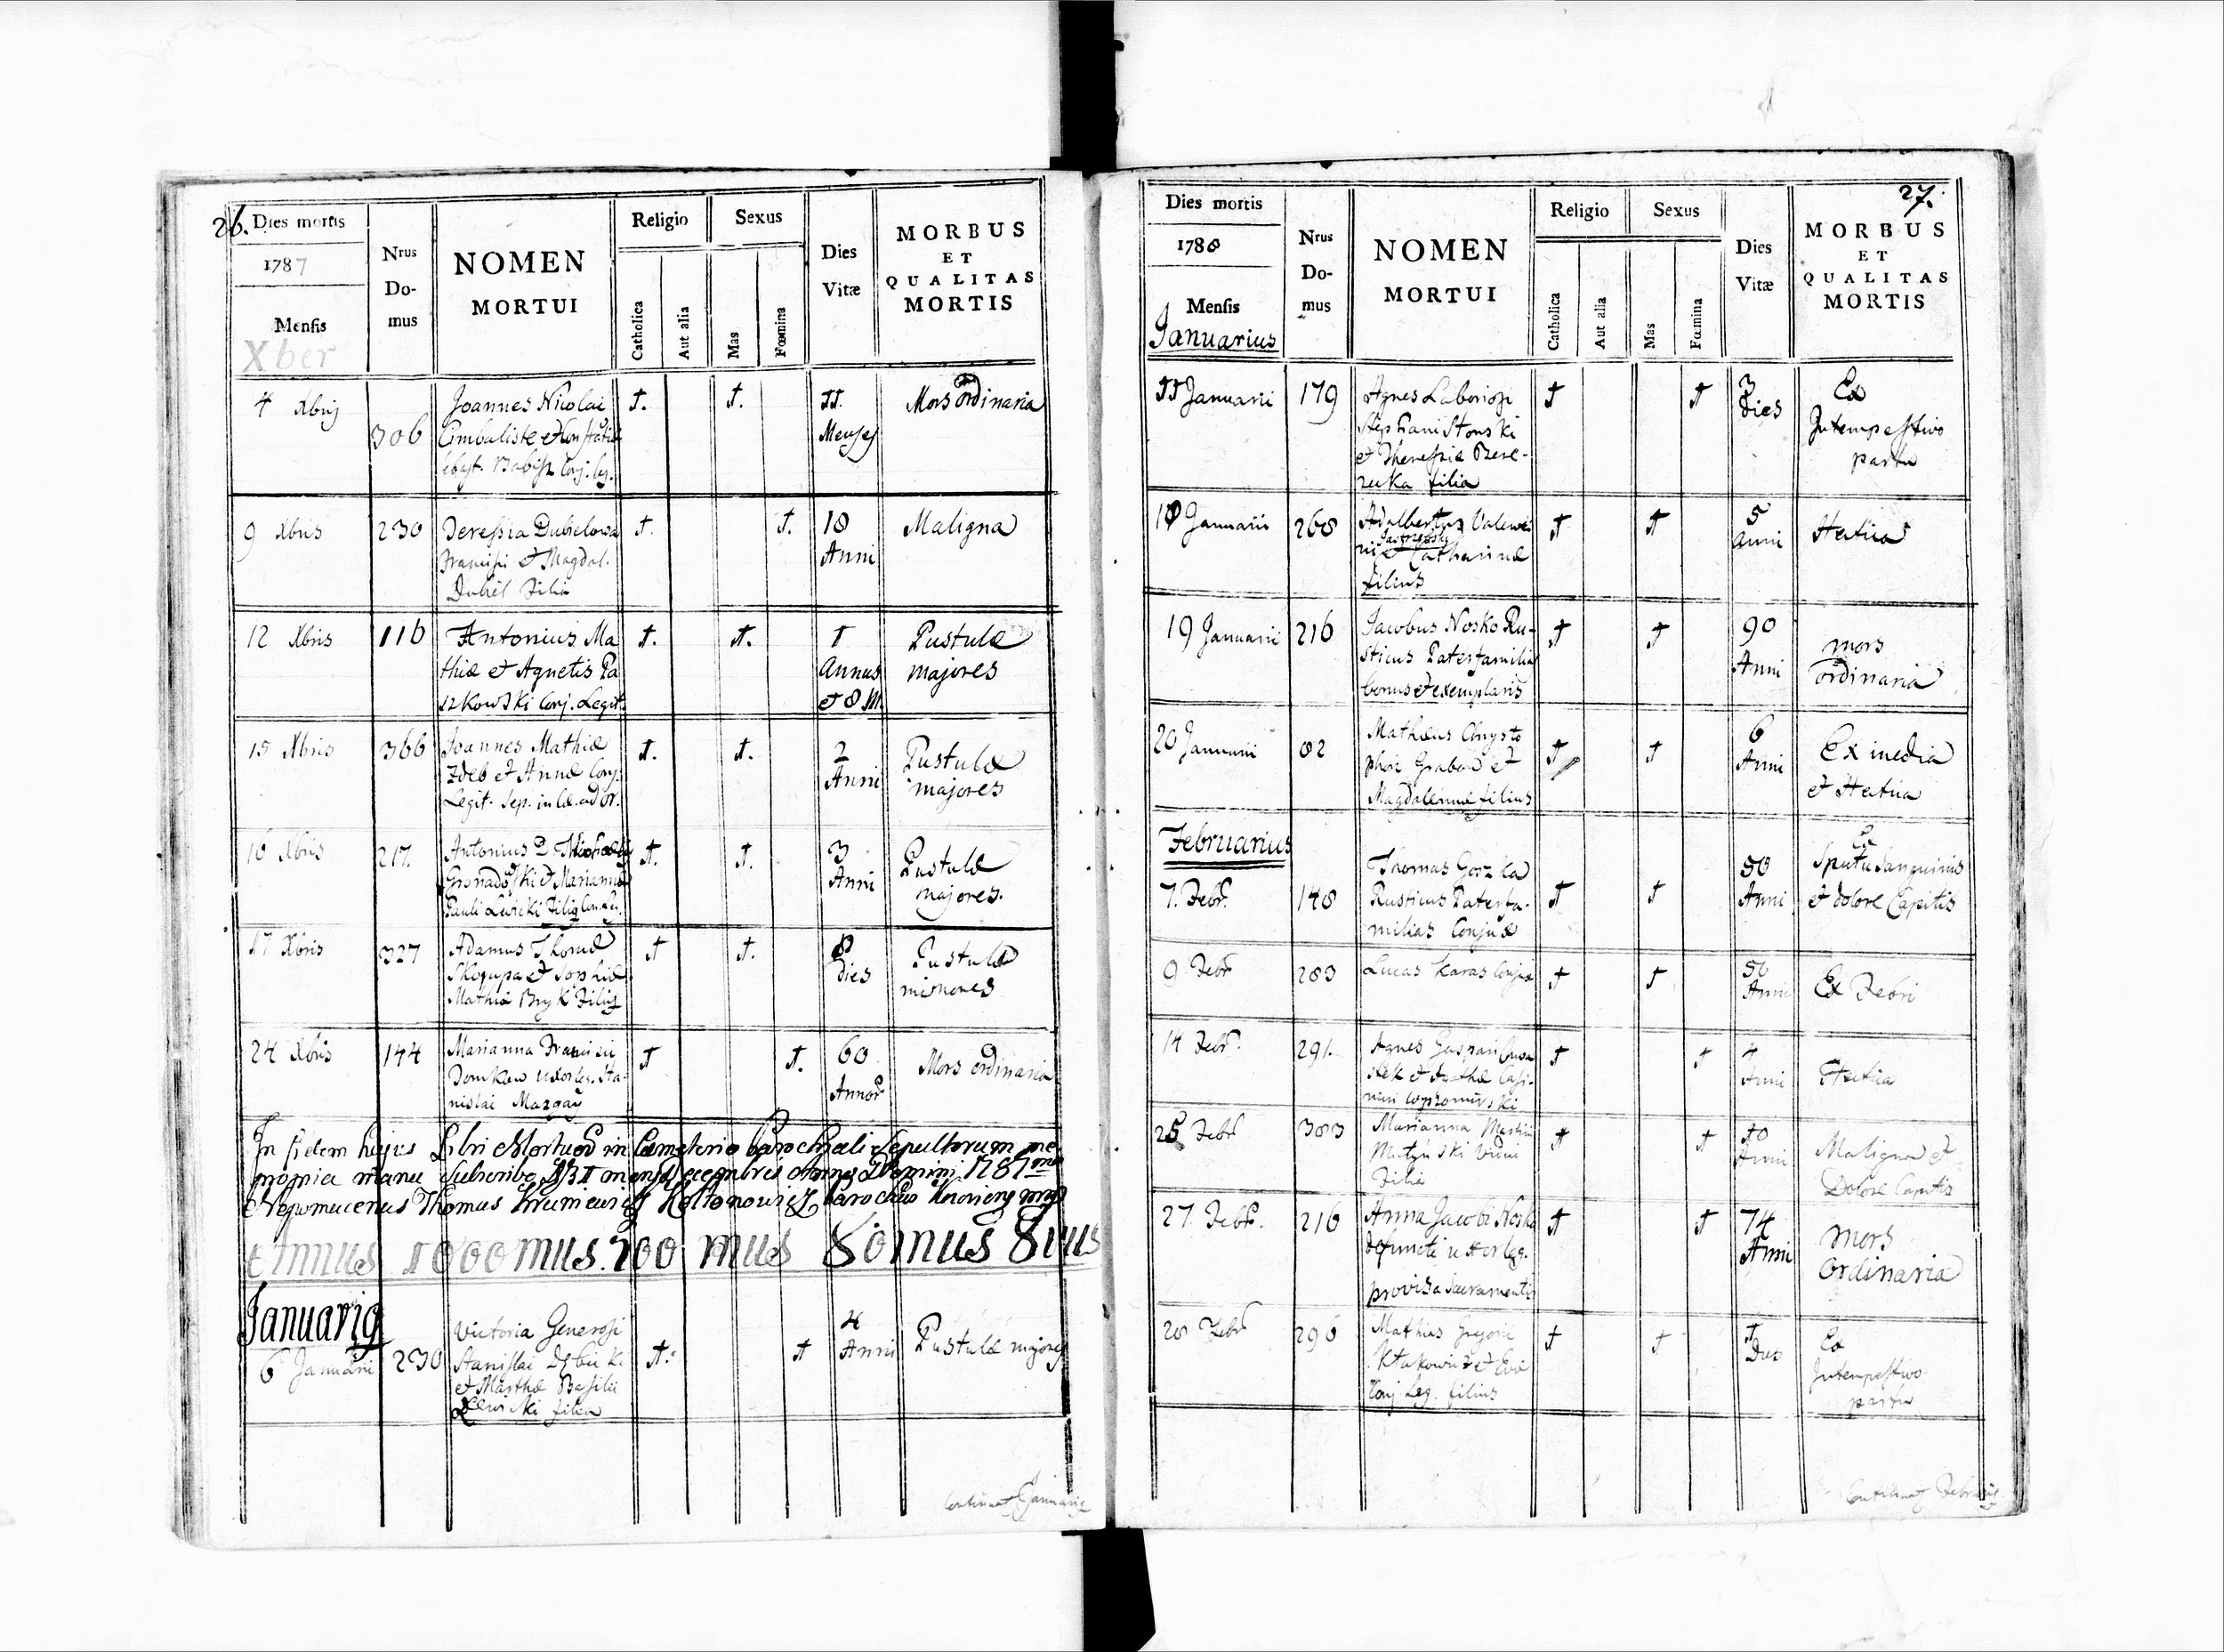 26.
Dies mortis
1787
Mensis
Xber
Nrus
Do-
mus
NOMEN
MORTUI
Religio
Catholica
Aut alia
Sexus
Mas
Fœmina
Dies
Vitæ
MORBUS
ET
QUALITAS
MORTIS
4 Xbris 306
Joannes Nicolai
Cimbaliste et
Babisz Conj. leg.
†. †.
11.
Menses
Mors ordinaria
9 Xbris 230
Teressia Dubielowa
Francisci et Magdal.
Dubiel Filia
†. †.
18
Anni
Maligna
12 Xbris 116
Antonius Ma
thiæ et Agnetis Pa
szkowski Conj. Legit.
†. †.
1
Annus
et 8 M.
Pustulæ
majores
15 Xbris 366
Joannes Mathiæ
Zdeb et Annæ Conj.
Legit. Sep. in
†. †.
2
Anni
Pustulæ
majores
16 Xbris 217.
Antonius D.
Gronadowski et Mariannæ
Pauli Lewicki Filig
†. †.
3
Anni
Pustulæ
majores.
17 Xbris 327
Adamus Thomæ
Skorupa et Sophiæ
Mathiæ Bryk Filig
† †.
8
dies
Pustulæ
minores
24 Xbris 144
Marianna Francisci
Domkow uxor leg. Sta-
nislai Mazgay
† †.
60
Annor
Mors ordinaria
In fidem hujus Libri Mortuor in Cæmeterio Parochiali Sepultorum me
propria manu Subscribo D 31 mensis Decembris Anno Domini 1787mo
Nepomucenus Thomas
Annus 1000mus. 700 mus 80mus 8vus
Januarig
6 Januarii 230
Victoria Generosi
Stanislai Dębicki
et Marthæ Basilii
Lewicki filia
†. †
4
Anni
Pustulæ majores
Continuat Januarig
27.
Dies mortis
1788
Mensis
Januarius
Nrus
Do-
mus
NOMEN
MORTUI
Religio
Catholica
Aut alia
Sexus
Mas
Fœmina
Dies
Vitæ
MORBUS
ET
QUALITAS
MORTIS
11 Januarii 179
Agnes Laboriosi
Stephani Stonski
et Theressiæ Bere-
zecka filia
† †
3
Dies
Ex
Intempestivo
partu
18 Januarii 268
Adalbertus Valenti
ni et Catharinæ
filius
† †
5
Anni
Hectica
19 Januarii 216
Jacobus Nosko Ru-
sticus Paterfamilias
bonus et exemplaris
† †
90
Anni
mors
ordinaria
20 Januarii 82
Mathæus Chrysto
phori Grabow et
Magdalennæ filius
† †
6
Anni
Ex inedia
et Hectica
Februarius
7. Febr. 148
Thomas Gorzka
Rusticus Paterfa-
milias Conjux
† †
50
Anni
Ex
Sputu Sanguinis
et dolore Capitis
9 Febr 283
Lucas Karas Conjux
† †
56
Anni
Ex Febri
14 Febr. 291.
Agnes Gaspari
et Agathæ Casi-
miri
† †
4
Anni
Hectica
25 Febr 383
Marianna Martini
Filia
† †
10
Anni
Maligna et
Dolore Capitis
27. Febr. 216
Anna Jacobi Nosko
defuncti uxor leg.
provisa Sacramentis
† †
74
Anni
mors
Ordinaria
28 Febr 296
Mathias Gregorii
Ktakowicz et Evæ
Conj. Leg. filius
† †
1
Dies
Ex
Intempestivo
partu
Continuat Februarig